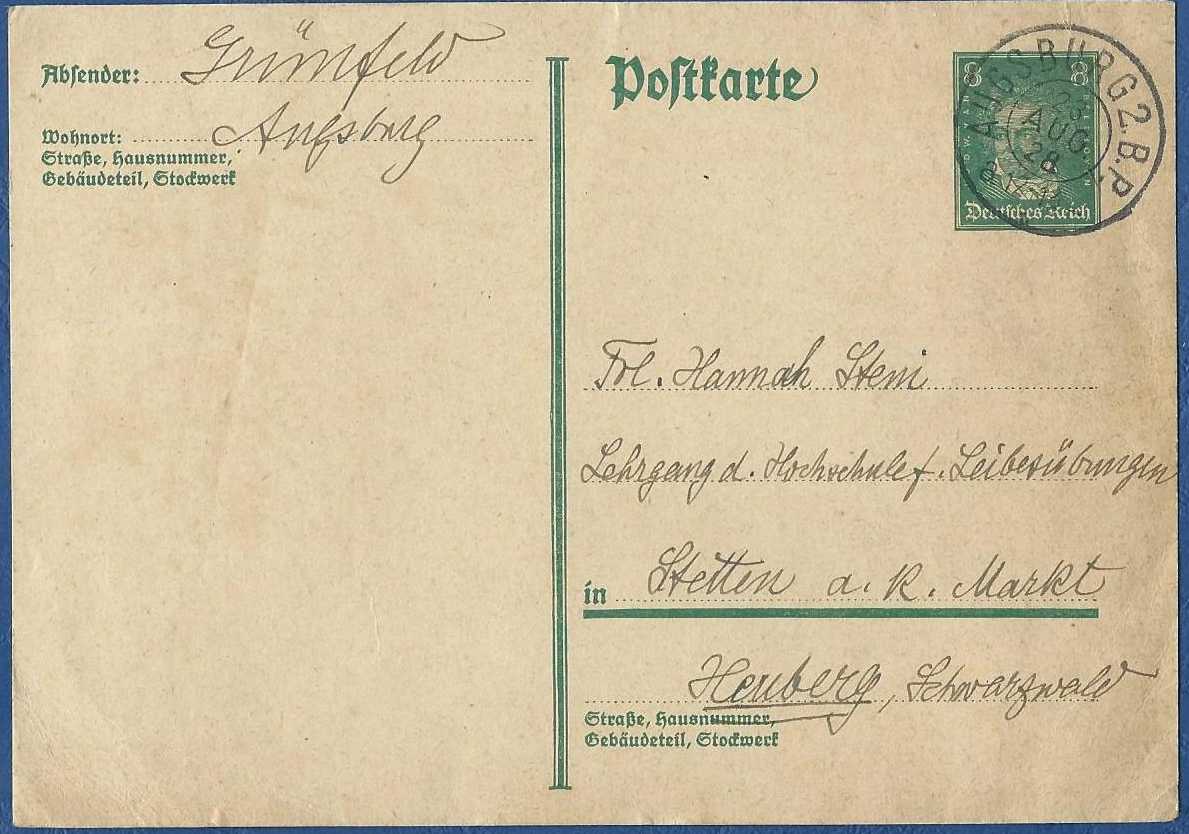 Absender: Grünfeld
Wohnort: Augsburg
Straße, Hausnummer,
Gebäudeteil, Stockwerk
Postkarte
8 8
Deutsches Reich
AUGSBURG 2. B.P.
AUG
28
Frl. Hannah Stern
Lehrgang d. Hochschule f. Leibesübungen
in Stetten a. k. Markt
Heuberg, Schwarzwald
Straße, Hausnummer,
Gebäudeteil, Stockwerk